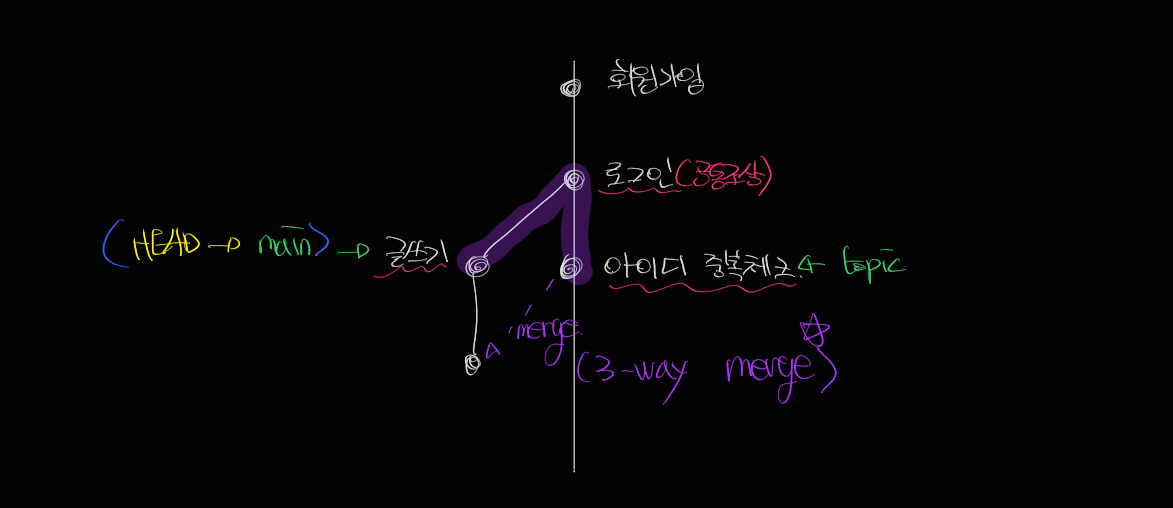 회원가입
로그인(공통조상)
(HEAD → main) → 글쓰기
아이디 중복체크 ← topic
merge
(3-way merge)